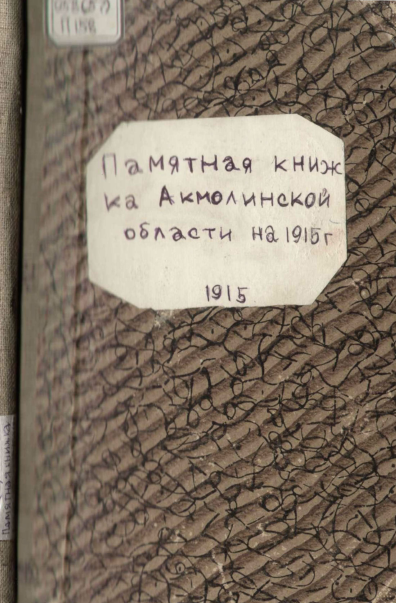 П 158
Памятная книж
ка Акмолинской
области на 1915 г
1915
Памятная книжка